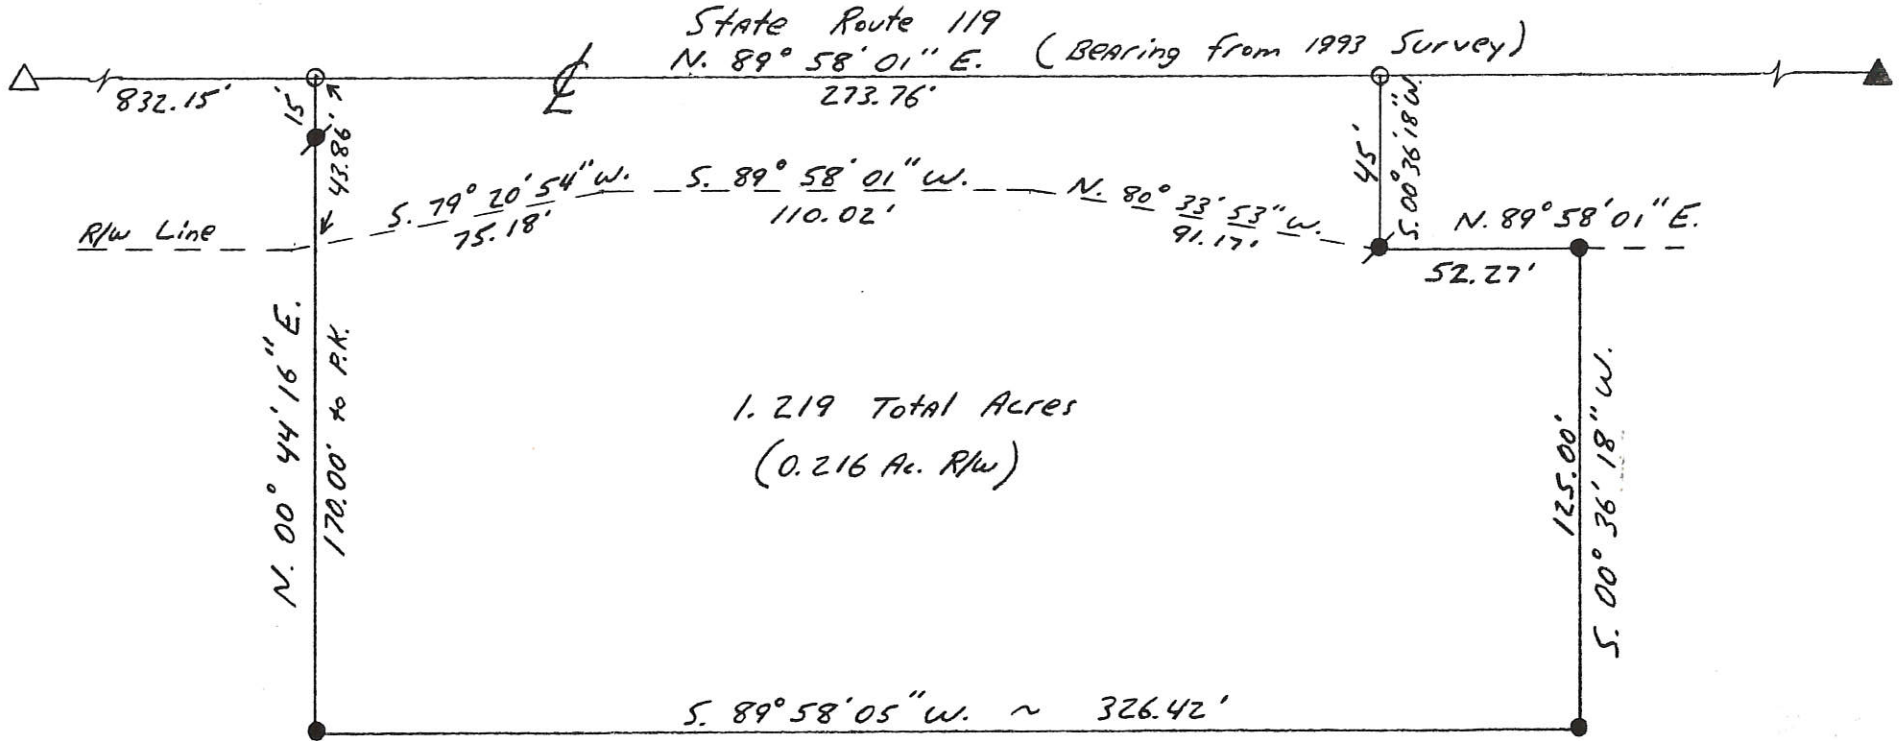 State Route 119
N. 89° 58' 01" E. (Bearing from 1993 Survey)
℄
832.15'
273.76'
15'
43.86'
45'
S. 00° 36' 18" W.
S. 79° 20' 54" W.
75.18'
S. 89° 58' 01" W.
110.02'
N. 80° 33' 53" W.
91.17'
N. 89° 58' 01" E.
52.27'
R/W Line
N. 00° 44' 16" E.
170.00' to P.K.
1.219 Total Acres
(0.216 Ac. R/W)
125.00'
S. 00° 36' 18" W.
S. 89° 58' 05" W. ~ 326.42'